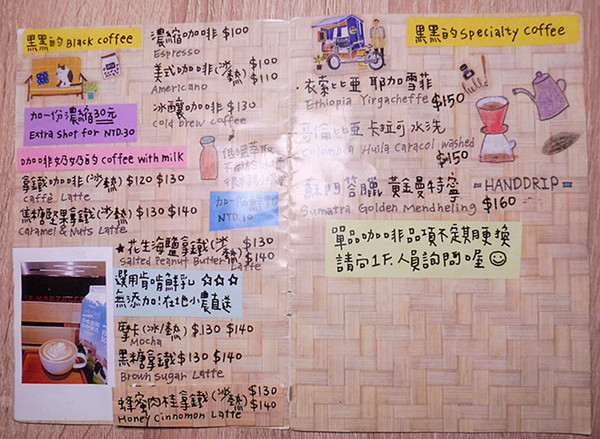 黑黑的 Black coffee
濃縮咖啡 $100
Espresso
美式咖啡(冰熱) $100 $110
Americano
冰釀咖啡 $130
Cold brew coffee
加一份濃縮30元
Extra Shot for NTD.30
咖啡奶奶的 coffee with milk
拿鐵咖啡(冰熱) $120 $130
Caffè Latte
焦糖堅果拿鐵(冰熱) $130 $140
Caramel & Nuts Latte
低溫萃取
NTD.10
★花生海鹽拿鐵(冰熱) $130 $140
Salted Peanut Butter Latte
選用 鮮乳 ☆☆☆
無添加!在地小農直送
摩卡(冰/熱) $130 $140
Mocha
黑糖拿鐵 $130 $140
Brown Sugar Latte
蜂蜜肉桂拿鐵(冰熱) $130 $140
Honey Cinnomon Latte
黑黑的 Specialty coffee
hello
衣索比亞 耶加雪菲
Ethiopia Yirgacheffe $150
哥倫比亞 卡拉可 水洗
Columbia Huila Caracol washed
$150
蘇門答臘 黃金曼特寧
Sumatra Golden Mendheling $160
HANDDRIP
單品咖啡品項不定其更換
請向1F人員詢問喔☺